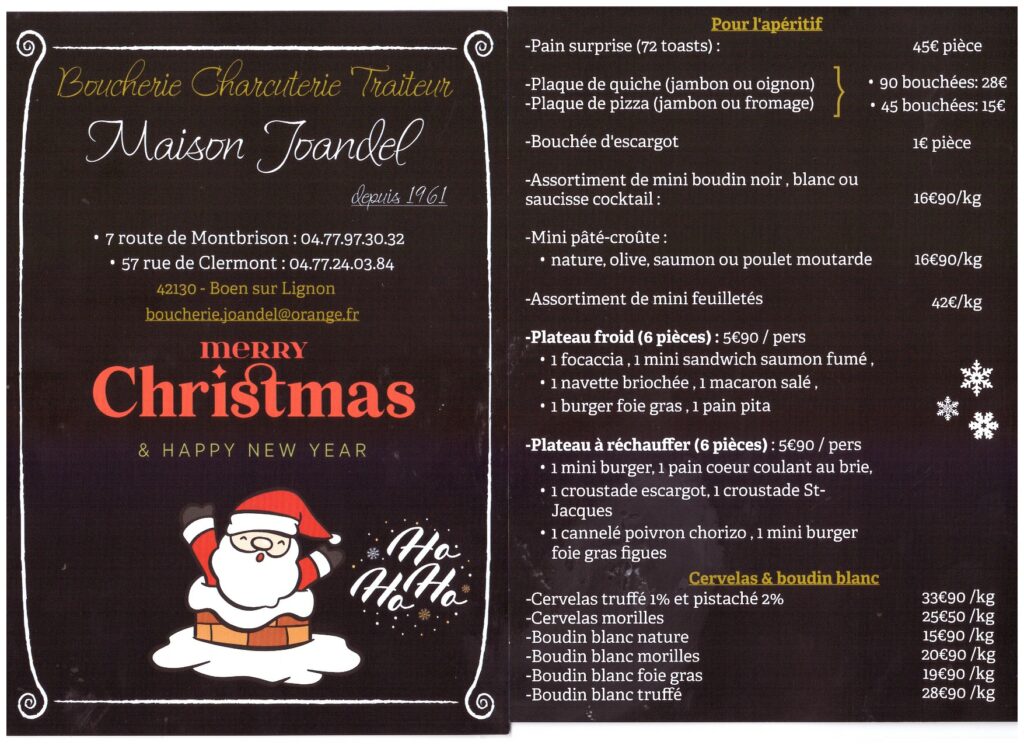 Boucherie Charcuterie Traiteur
Maison Joandel
depuis 1961
• 7 route de Montbrison : 04.77.97.30.32
• 57 rue de Clermont : 04.77.24.03.84
42130 - Boen sur Lignon
boucherie.joandel@orange.fr
MERRY
Christmas
& HAPPY NEW YEAR
Ho
Ho Ho
Pour l'apéritif
-Pain surprise (72 toasts) : 45€ pièce
-Plaque de quiche (jambon ou oignon) • 90 bouchées: 28€
-Plaque de pizza (jambon ou fromage) • 45 bouchées: 15€
-Bouchée d'escargot 1€ pièce
-Assortiment de mini boudin noir , blanc ou
saucisse cocktail : 16€90/kg
-Mini pâté-croûte :
• nature, olive, saumon ou poulet moutarde 16€90/kg
-Assortiment de mini feuilletés 42€/kg
-Plateau froid (6 pièces) : 5€90 / pers
• 1 focaccia , 1 mini sandwich saumon fumé ,
• 1 navette briochée , 1 macaron salé ,
• 1 burger foie gras , 1 pain pita
-Plateau à réchauffer (6 pièces) : 5€90 / pers
• 1 mini burger, 1 pain coeur coulant au brie,
• 1 croustade escargot, 1 croustade St-
Jacques
• 1 cannelé poivron chorizo , 1 mini burger
foie gras figues
Cervelas & boudin blanc
-Cervelas truffé 1% et pistaché 2% 33€90 /kg
-Cervelas morilles 25€50 /kg
-Boudin blanc nature 15€90 /kg
-Boudin blanc morilles 20€90 /kg
-Boudin blanc foie gras 19€90 /kg
-Boudin blanc truffé 28€90 /kg